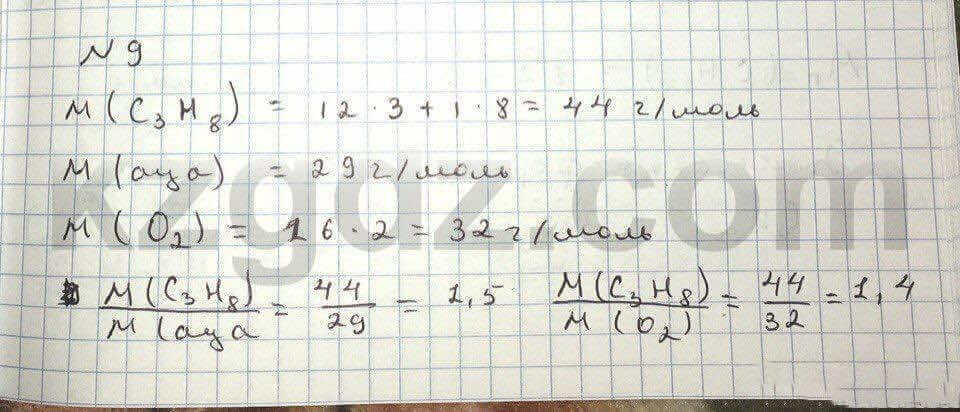 N 9
M(C₃H₈) = 12 · 3 + 1 · 8 = 44 г/моль
M(ауа) = 29 г/моль
M(O₂) = 16 · 2 = 32 г/моль
M(C₃H₈)/M(ауа = 44/29 = 1,5 M(C₃H₈)/M(O₂) = 44/32 = 1,4
kzgdz.com